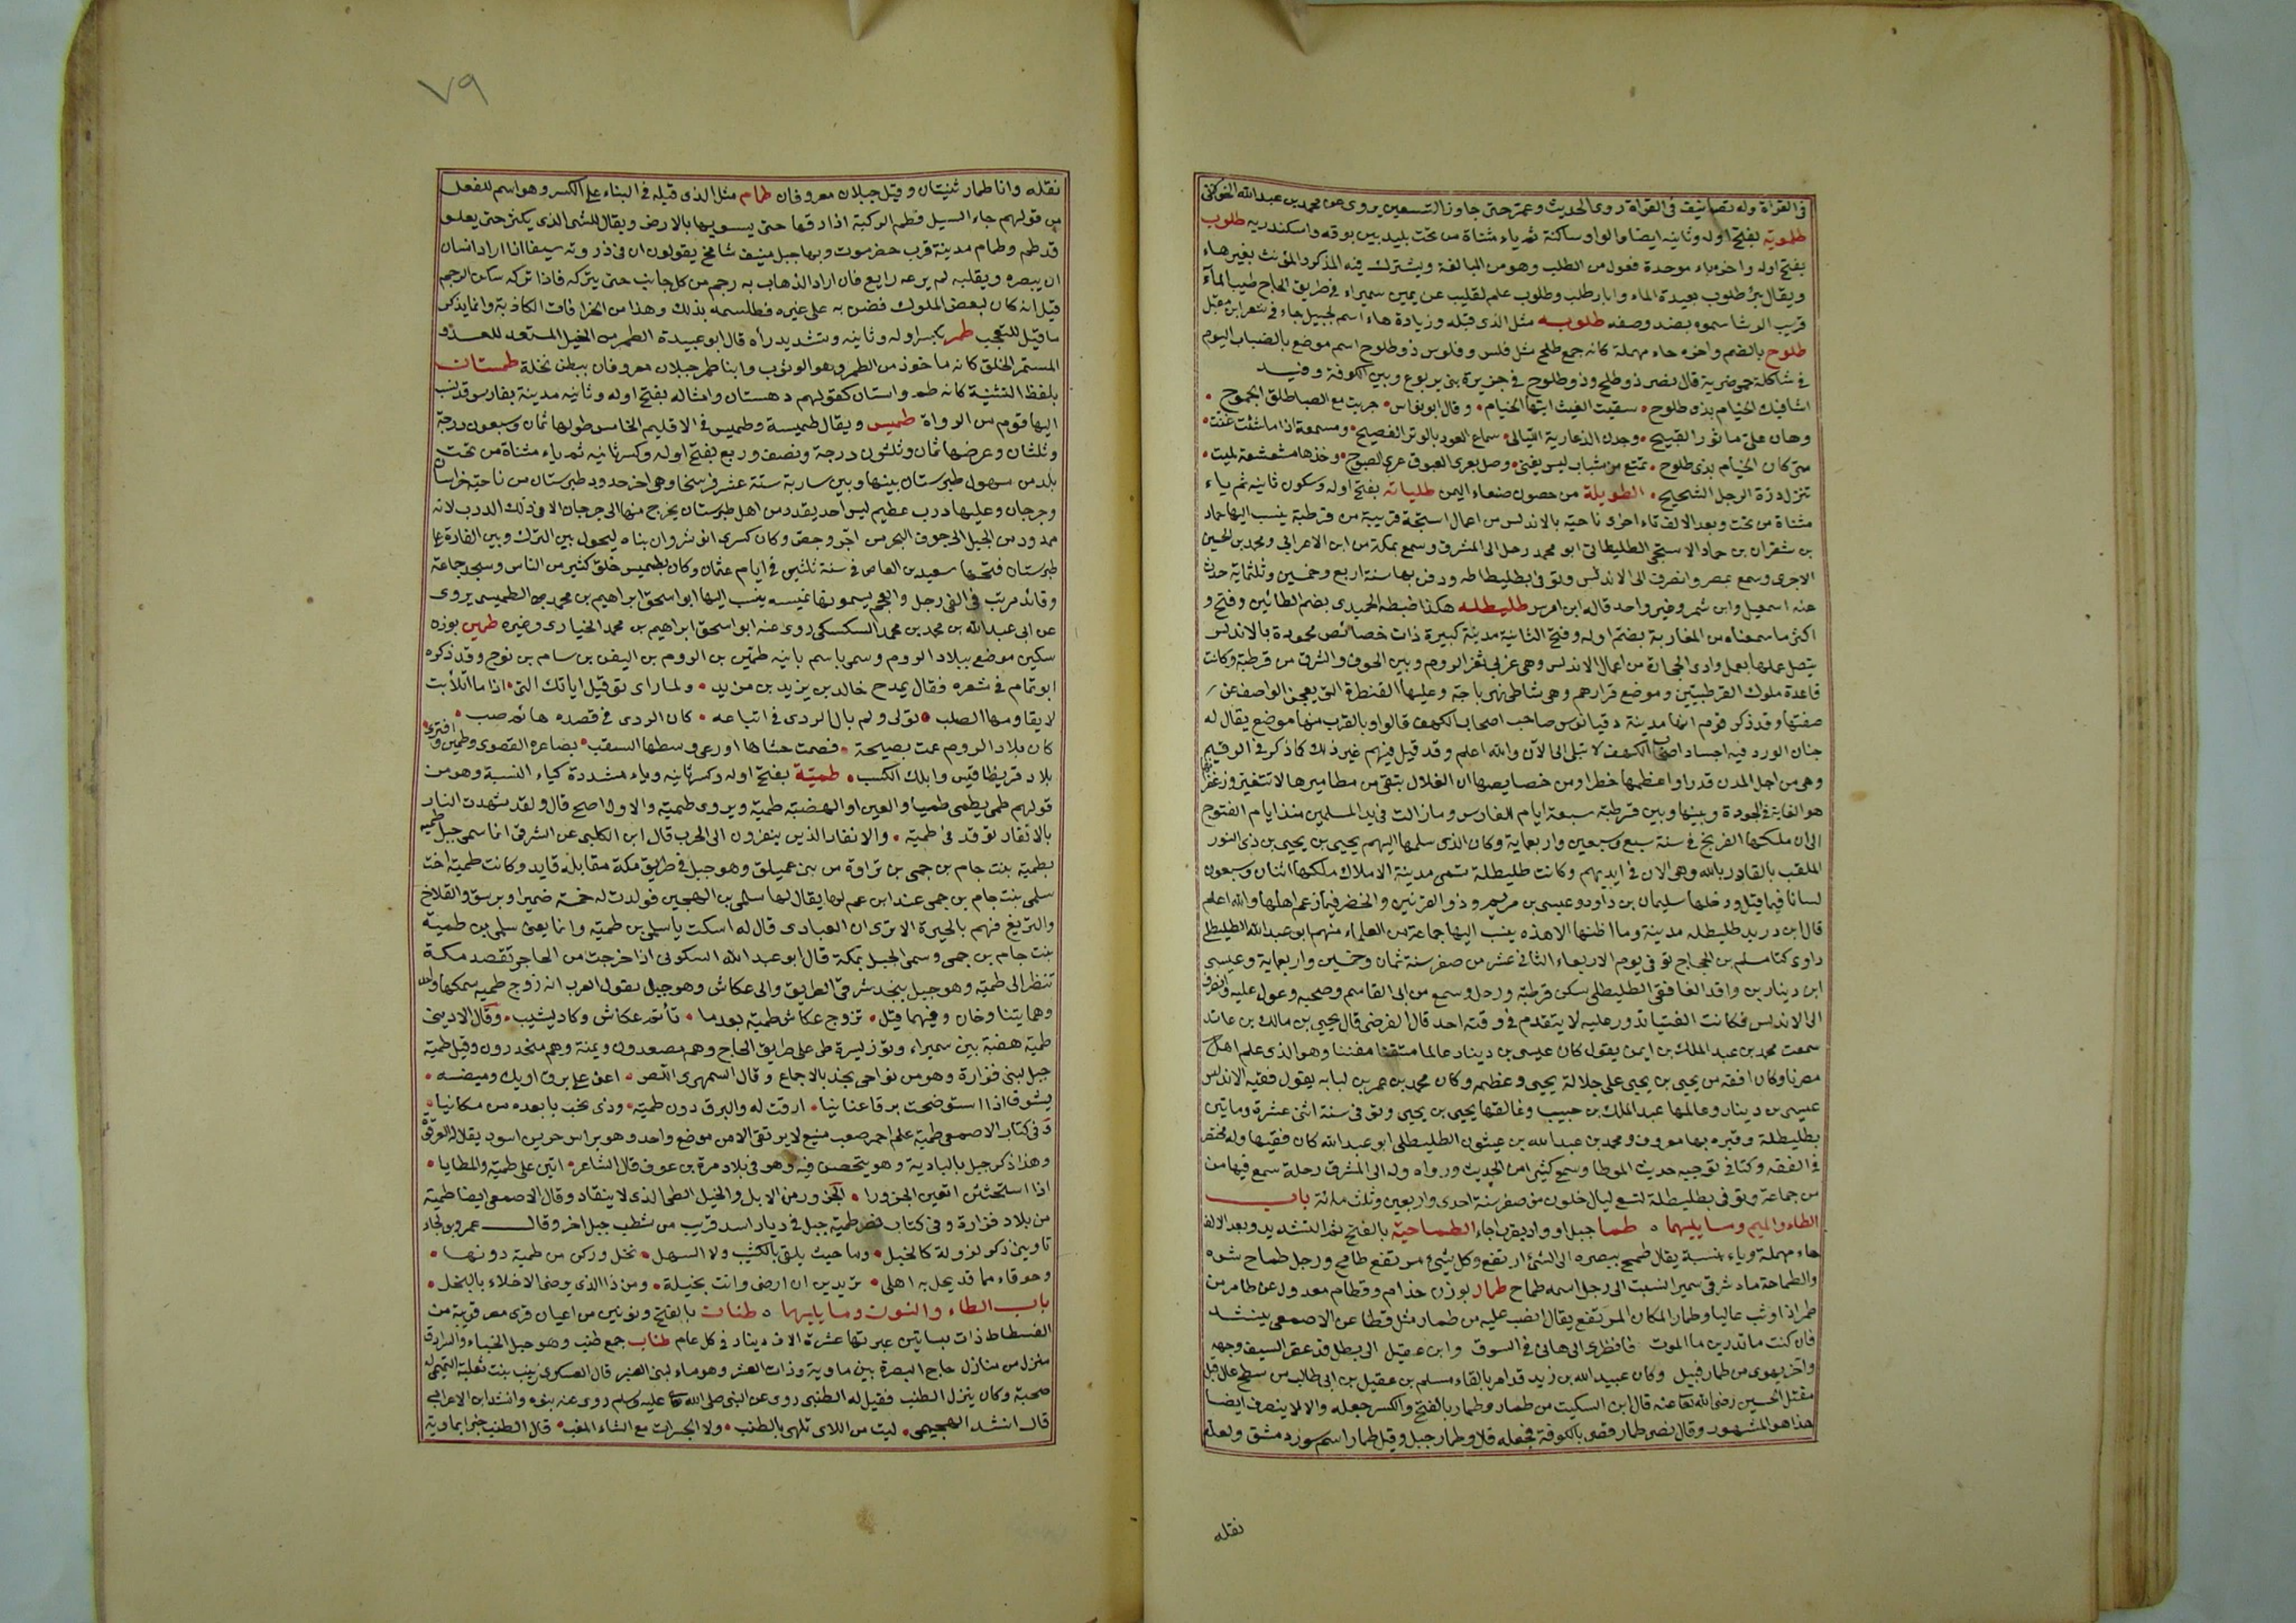 في القراة وله تصانيف في القراة روى الحديث وعمر حتى جاوز التسعين يروى عن محمد بن عبد الله الخولاني
طلموية بفتح اوله وثانيه ايضا والواو ساكنة ثم ياء مثناة من تحت بليد بين برقه واسكندريه طلوب
بفتح اوله واخره باء موحدة فعول من الطلب وهو من المبالغة ويشترك فيه المذكر والمؤنث بغير هاء
ويقال بئر طلوب بعيدة الماء وابار طلب وطلوب علم لقليب عن يمين سميراء في طريق الحاج طيب الماء
قريب الرشا سموه بضد وصفه طلوبه مثل الذى قبله وزيادة هاء اسم لجبيل جاء في شعر ابن مقبل
طلوح بالضم واخره حاء مهملة كانه جمع طلح مثل فلس وفلوس ذو طلوح اسم موضع بالضباب اليوم
في شاكلة حمى ضرية قال نصر ذو طلح وذو طلوح في جزيرة بنى يربوع وبين الكوفة وفيد
اشاقيك الخيام بذى طلوح سقيت الغيث ايتها الخيام وقال ابو نواس جريت مع الصبا طلق الجموح
وهان على ماثور القبيح وجدت الذ عارية الليالى سماع العود بالوتر الفصيح ومسمعة اذا ما شئت غنت
متى كان الخيام بذى طلوح تمتع من شباب ليس يبقى وصل بعرى الغبوق عرى الصبوح وخذها مشعشعة لميت
تنزل درة الرجل الشحيح الطويلة من حصون صنعاء اليمن طلياته بفتح اوله وسكون ثانيه ثم ياء
مثناة من تحت وبعد الالف تاء اخرى ناحية بالاندلس من اعمال استجة قريبة من قرطبة ينسب اليها حماد
بن شقران بن حماد الاستجى الطليطاني ابو محمد رحل الى المشرق وسمع بمكة من ابن الاعرابي ومحمد بن الحسين
الاجرى وسمع بمصر وانصرف الى الاندلس وتوفى بطليطاطه ودفن بها سنة اربع وخمسين وثلثماية حدث
عنه اسمعيل وابن شمر وغير واحد قاله ابن الفرس طليطله هكذا ضبطه الحميدى بضم الطائين وفتح و
اكثر ما سمعناه من المغاربة بضم اوله وفتح الثانية مدينة كبيرة ذات خصائص محمودة بالاندلس
يتصل عملها بعمل وادى الحجارة من اعمال الاندلس وهى غربي ثغر الروم وبين الجوف والشرق من قرطبة وكانت
قاعدة ملوك القرطبيين وموضع قرارهم وهى شاطى نهر باجة وعليها القنطرة التى يعجز الواصف عن
صفتها وقد ذكر قوم انها مدينة دقيانوس صاحب اصحاب الكهف قالوا وبالقرب منها موضع يقال له
جنان الورد فيه اجساد اصحاب الكهف لا تبلى الى الآن والله اعلم وقد قيل فيهم غير ذلك كما ذكر في الرقيم
وهى من اجل المدن قدرا واعظمها خطرا ومن خصايصها ان الغلال تبقى من مطاميرها لا تتغير وزعفرانها
هو الغاية في الجودة وبينها وبين قرطبة سبعة ايام للفارس وما زالت في يد المسلمين منذ ايام الفتوح
الى ان ملكها الفرنج في سنة سبع وسبعين واربعماية وكان الذى سلمها اليهم يحيى بن يحيى بن ذى النور
الملقب بالقادر بالله وهى الان في ايديهم وكانت طليطلة تسمى مدينة الاملاك ملكها اثنان وسبعون
لسانا فيما قيل ودخلها سليمان بن داود وعيسى بن مريم وذو القرنين والخضر فيما زعم اهلها والله اعلم
قال ابن دريد طليطله مدينة وما اظنها الا هذه ينسب اليها جماعة من العلماء منهم ابو عبد الله الطليطلى
راوى كتا مسلم بن الحجاج توفى يوم الاربعاء الثاني عشر من صفر سنة ثمان وخمسين واربعماية وعيسى
ابن دينار بن واقد الغافقى الطليطلى سكن قرطبة ورحل وسمع من ابى القاسم وصحبه وعول عليه وانصرف
الى الاندلس فكانت الفتيا تدور عليه لا يتقدم في وقته احد قال الفرضى قال يحيى بن مالك بن عائد
سمعت محمد بن عبد الملك بن ايمن يقول كان عيسى بن دينار عالما متقنا مفننا وهو الذى علم اهل
مصرنا وكان افقه من يحيى بن يحيى على جلالة يحيى وعظمه وكان محمد بن عمر بن لبابه يقول فقيه الاندلس
عيسى بن دينار وعالمها عبد الملك بن حبيب وعاقلها يحيى بن يحيى وتوفى سنة اثنى عشرة وماتين
بطليطلة وقبره بها معروف ومحمد بن عبد الله بن عيشون الطليطلى ابو عبد الله كان فقيها وله مختصر
في الفقه وكتا في توجيه حديث الموطا وسمع كثيرا من الحديث ورواه وله الى المشرق رحلة سمع فيها من
من جماعة وتوفى بطليطلة لتسع ليال خلون من صفر سنة احدى واربعين وثلث مائة باب
الطاء والميم وما يليهما طما جبل او واد بقرب اجاء الطماحيه بالفتح ثم التشديد وبعد الالف
حاء مهملة وياء نسبة يقال طمح ببصره الى الشئ ارتفع وكل شئ مرتفع طامح ورجل طماح شره
والطماحة ماء شرقى سميرا نسبت الى رجل اسمه طماح طمار بوزن حذام وقطام معدول عن طامر من
طمر اذا وثب عاليا وطمار المكان المرتفع يقال انصب عليه من طمار مثل قطا عن الاصمعى ينشد
فان كنت ما تدرين ما الموت فانظرى الى هانى في السوق وابن عقيل الى بطل قد عقر السيف وجهه
واخر يهوى من طمار قبيل وكان عبيد الله بن زيد قد امر بالقاء مسلم بن عقيل بن ابى طالب من سطح عال قبل
مقتل الحسين رضى الله تعا عنه قال ابن السكيت من طمار وطمار بالفتح والكسر جعله والا لا ينصرف ايضا
هذا هو المشهور وقال نصر طمار قصر بالكوفة فجعله قلا وطمار جبل وقيل طمار اسم سور دمشق ولعله
نقله
٧٩
نقله وانا طمار ثنيتان وقيل جبلان معروفان طمام مثل الذى قبله في البناء على الكسر وهو اسم للفعل
من قولهم جاء السيل فطم الركية اذا دفها حتى يسويها بالارض ويقال للشئ الذى يكثر حتى يعلو
قد طم وطمام مدينة قرب حضرموت وبها جبل منيف شامخ يقولون ان في ذروته سيفا اذا اراد انسان
ان يبصره ويقلبه لم يرعه رايع فان اراد الذهاب به رجم من كل جانب حتى يتركه فاذا تركه سكن الرجم
قيل انه كان لبعض الملوك فضن به على غيره فطلسمه بذلك وهذا من الخرافات الكاذبة وانما يذكر
ما قيل للتعجب طمر بكسر اوله وثانيه وتشديد رأه قال ابو عبيدة الطمر من الخيل المستعد للعدو
المستمر الخلق كانه ماخوذ من الطمر وهو الوثوب وابنا طمر جبلان معروفان ببطن نخلة طمستان
بلفظ التثنية كانه طم واستان كقولهم دهستان وامثاله بفتح اوله وثانيه مدينة بفارس قد نسب
اليها قوم من الرواة طميس ويقال طميسة وطميس في الاقليم الخامس طولها ثمان وسبعون درجة
وثلثان وعرضها ثمان وثلثون درجة ونصف وربع بفتح اوله وكسر ثانيه ثم ياء مثناة من تحت
بلد من سهول طبرستان بينها وبين سارية ستة عشر فرسخا وهى اخر حدود طبرستان من ناحية خراسان
وجرجان وعليها درب عظيم ليس احد يقدر من اهل طبرستان يخرج منها الى جرجان الا في ذلك الدرب لانه
ممدود من الجبل الى جوف البحر من اجر وجص وكان كسرى انوشروان بناه ليحول بين الترك وبين الغارة على
طبرستان فتحها سعيد بن العاص في سنة ثلثين في ايام عثمان وكان بطميس خلق كثير من الناس ومسجد جماعة
وقائد مرتب في الفى رجل والعجم يسمونها تميسه ينسب اليها ابو اسحق ابراهيم بن محمد الطميسى يروى
عن ابى عبد الله بن محمد بن محمد السكسكى روى عنه ابو اسحق ابراهيم بن محمد الخيارى وغيره طمين بوزه
سكين موضع ببلاد الروم وسمى باسم بانيه طمين بن الروم بن اليفن بن سام بن نوح وقد ذكره
ابو تمام في شعره فقال يمدح خالد بن يزيد بن مزيد ولما راى توفيل اياتك التى اذا ما اتلأبت
لا يقاومها الصلب تولى ولم يال الردى في اتباعه كان الردى في قصده هائم صب
كان بلاد الروم عمت بصيحة فضمت حشاها او رعى وسطها السقب بصاغرة القصوى وطمين واقترى
بلاد قرنطاوس وابلك السكب طميّة بفتح اوله وكسر ثانيه وياء مشددة كياء النسبة وهو من
قولهم طمى يطمى طميا والعين او الهضبة طمية ويروى طمية والاول اصح قال ولقد شهدت النار
بالانفار توقد في طمية والانفار الذين ينفرون الى الحرب قال ابن الكلبى عن الشرقى انما سمى جبل طمية
بطمية بنت جام بن جمى بن تراوة من بنى عمليق وهو جبل في طريق مكة مقابلة قايد وكانت طمية اخت
سلمى بنت جام بن جمى عند ابن عم لها يقال لها سلمى بن الهجين فولدت له خمسة ضميرا وبرسق والقلاخ
والتريغ فهم بالحيرة الا ترى ان العبادى قال له اسكت ياسلمى بن طمية وانما يعنى سلمى بن طمية
بنت جام بن جمى وسمى الجبل بمكة قال ابو عبد الله السكونى اذا خرجت من الحاجر تقصد مكة
تنظر الى طمية وهو جبل بنجد شرقى الطريق والى عكاش وهو جبل يقول العرب انه زوج طمية سمكهما واحد
وهما يتناوخان وفيهما قيل تزوج عكاش طمية بعدما تأيم عكاش وكاد يشيب وقال الاديبى
طمية هضبة بين سميراء وتوز يسرة على طريق الحاج وهم مصعدون ويمنة وهم منحدرون وقيل طمية
جبل لبنى فزارة وهو من نواحى نجد بالاجماع وقال السمهرى اللص اعنى على برق اريك وميضه
يشوق اذا استوضحت برقا عنانيا ارقت له والبرق دون طمية وذى نجب يا بعده من مكانيا
وفي كتاب الاصمعى طمية علم احمر صعب منيع لا يرتقى الا من موضع واحد وهو براس حرس اسود يقال له العرقوة
وهذا ذكر جبل بالبادية وهو يتحصن فيه وهو في بلاد مرة بن عوف قال الشاعر اتين على طمية والمطايا
اذا استحثثن اتعبن الجزورا الجزور من الابل والخيل البطى الذى لا ينقاد وقال الاصمعى ايضا طمية
من بلاد فزارة وفي كتاب نصر طمية جبل في ديار اسد قريب من شطب جبل اخر وقال عمرو بن لجاء
تاوبنى ذكر لزولة كالخبل وما حيث يلقى بالكثيب ولا السهل تحل وركن من طمية دونها
وحوقاء مما قد يحل به اهلى تريدين ان ارضى وانت بخيلة ومن ذا الذى يرضى الاخلاء بالبخل
باب الطاء والنون وما يليهما طنات بالفتح ونونين من اعيان قرى مصر قريبة من
الفسطاط ذات بساتين عبرتها عشرة الاف دينار في كل عام طناب جمع طنب وهو حبل الخباء والسرادق
منزل من منازل حاج البصرة بين ماوية وذات العشر وهو ماء لبنى العنبر قال العسكرى زينب بنت ثعلبة التميمى له
صحبة وكان ينزل الطنب فقيل له الطنبى روى عن النبى صلى الله عليه وسلم روى عنه بنوه وانشد ابن الاعرابى
قال انشد الهجيمى ليت من اللاى تلهى بالطنب ولا الجسرات مع الشاء المغب قال الطنب خبرا بماوية